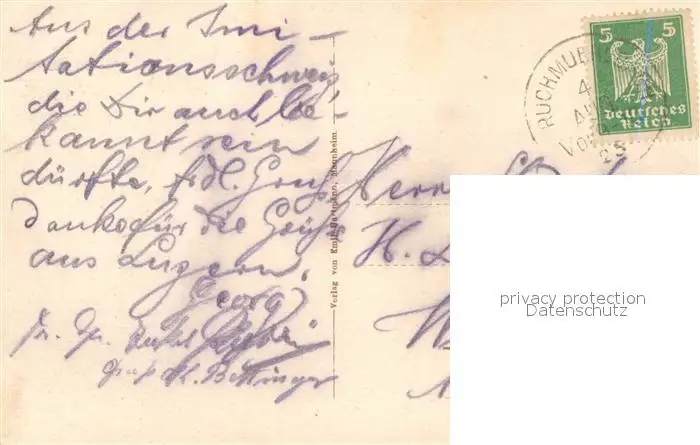 Aus der Imi-
tationsschweiz
die Dir auch be-
kannt sein
dürfte, frdl. Gruß
Danke für die Grüße
aus Luzern.
Georg
Fr. Gr.
Gruß Bettinger
Verlag von Emil Hartmann, Mannheim.
Herrn
H.
5 5
Deutsches
Reich
RUCHMU
4
AUG
VO
25
privacy protection
Datenschutz